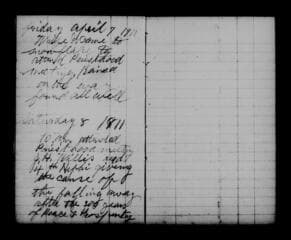 Friday April 7 1911
Wade & came to
snowflake to
attend Priesthood
meeting Rained
on the way
found all well
Saturday 8 1911
to day attended
Priesthood meeting
J H Willis read
4 H Nephi giving
the cause of
the falling away
after the 200 years
of Peace & Prosperity